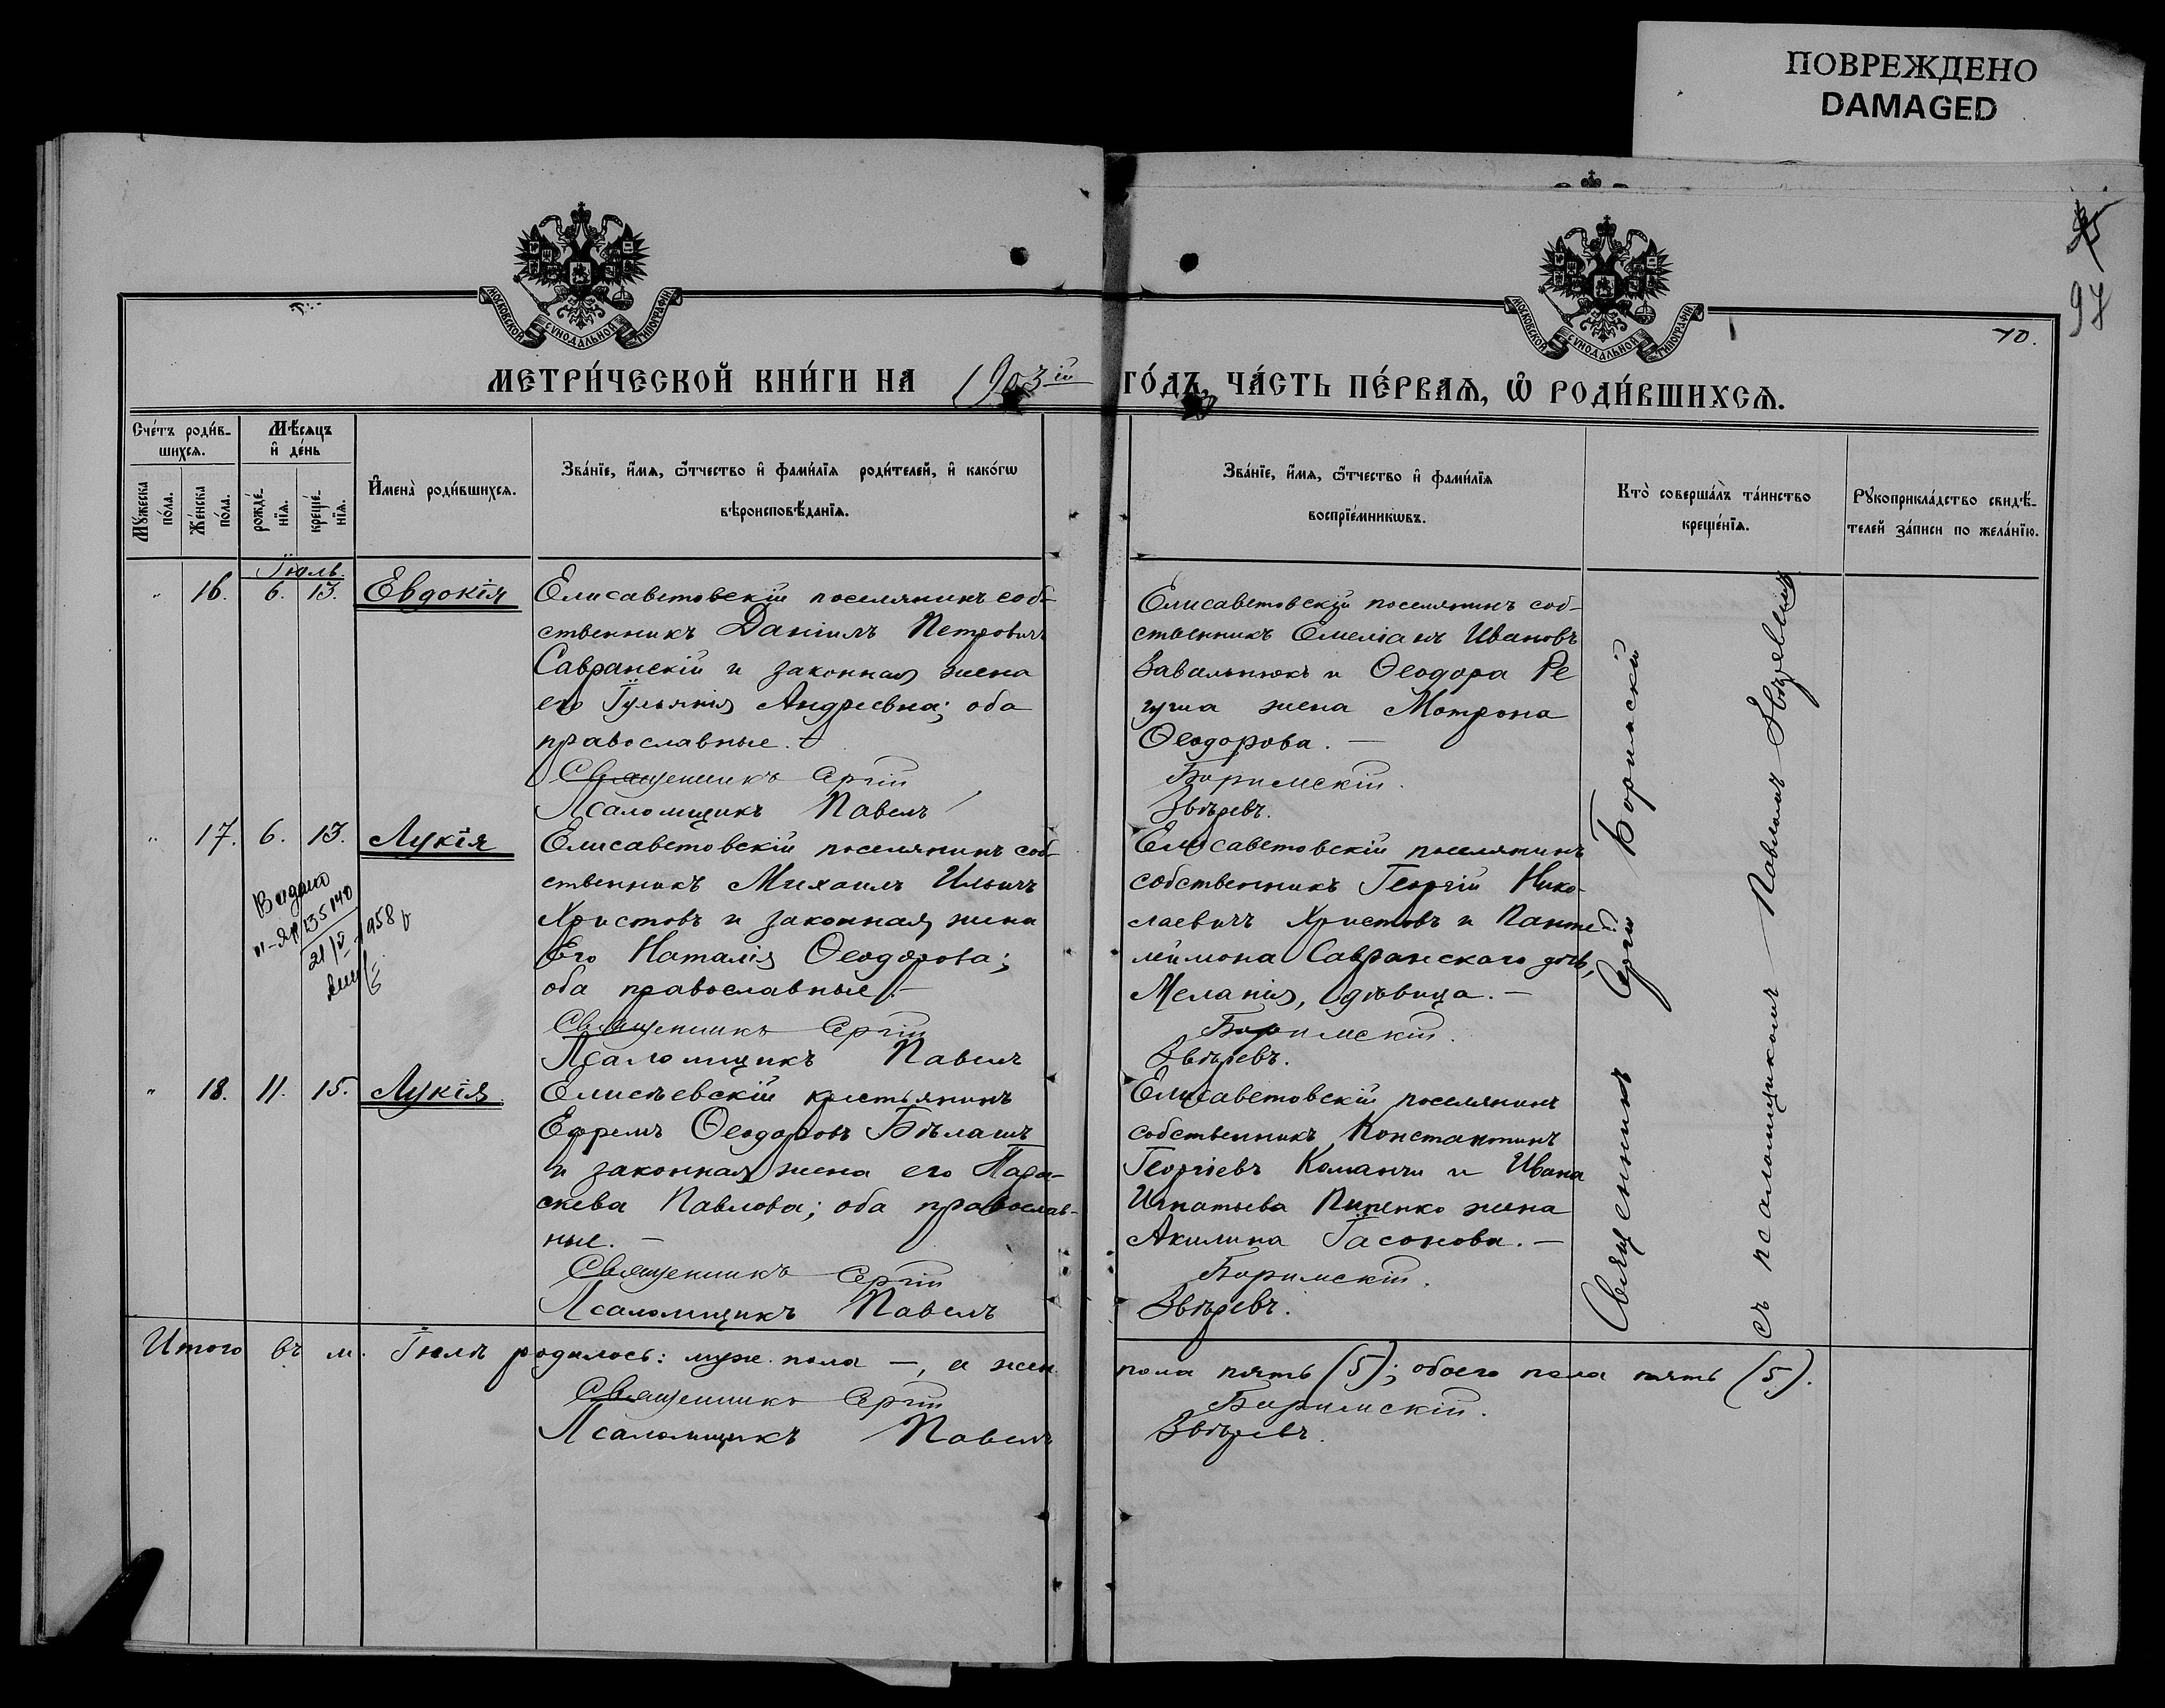 ПОВРЕЖДЕНО
DAMAGED
97
10.
МОСКОВСКОЙ СѴНОДАЛЬНОЙ ТИПОГРАФІИ
МОСКОВСКОЙ СѴНОДАЛЬНОЙ ТИПОГРАФІИ
МЕТРИ́ЧЕСКОЙ КНИ́ГИ НА 1903ій ГО́ДЪ, ЧА́СТЬ ПЕ́РВАѦ, Ѡ҆ РОДИ́ВШИХСѦ.
Сче́тъ роди́в-
шихсѧ.
Мѣ́сѧцъ
и҆ де́нь
Мꙋ́жеска
по́ла.
Же́нска
по́ла.
рожде́-
нїѧ.
креще́-
нїѧ.
И҆мена̀ роди́вшихсѧ.
Зва́нїе, и҆́мѧ, ѻ҆́тчество и҆ фами́лїѧ роди́телей, и҆ како́гѡ
вѣроисповѣ́данїѧ.
Зва́нїе, и҆́мѧ, ѻ҆́тчество и҆ фами́лїѧ
воспрїе́мникѡвъ.
Кто̀ соверша́лъ та́инство
креще́нїѧ.
Рꙋкоприкла́дство свидѣ́-
телей за́писи по жела́нїю.
Іюль.
" 16. 6. 13. Евдокія
Елисаветовскій поселянинъ соб-
ственникъ Даніилъ Петровичъ
Савранскій и законная жена
его Іульянія Андреевна; оба
православные.
Священникъ Сергій
Псаломщикъ Павелъ
Елисаветовскій поселянинъ соб-
ственникъ Емеліанъ Ивановъ
Завальнюкъ и Ѳеодора Ре
жена Мотрона
Ѳеодорова. —
Боримскій.
Звѣревъ.
" 17. 6. 13. Лукія
Выдано
135140
21/V-1958
Елисаветовскій поселянинъ соб-
ственникъ Михаилъ Ильичъ
Христовъ и законная жена
Его Наталія Ѳеодорова;
оба православные. —
Священникъ Сергій
Псаломщикъ Павелъ
Елисаветовскій поселянинъ
собственникъ Георгій Нико-
лаевичъ Христовъ и Панте-
леймона Савранскаго дочь,
Меланія, дѣвица. —
Боримскій.
Звѣревъ.
" 18. 11. 15. Лукія
Елисѣевскій крестьянинъ
Ефремъ Ѳеодоровъ Бѣлашъ
и законная жена его Пара-
скева Павлова; оба православ-
ные. —
Священникъ Сергій
Псаломщикъ Павелъ
Елисаветовскій поселянинъ
собственникъ Константинъ
Георгіевъ и Ивана
Игнатьева Пипенко жена
Акилина Іасонова. —
Боримскій.
Звѣревъ.
Священникъ Сергій Боримскій
съ псаломщикомъ Павломъ Звѣревымъ
Итого въ м. Іюлѣ родилось: муж. пола —, а жен. пола пять (5); обоего пола пять (5).
Священникъ Сергій Боримскій.
Псаломщикъ Павелъ Звѣревъ.